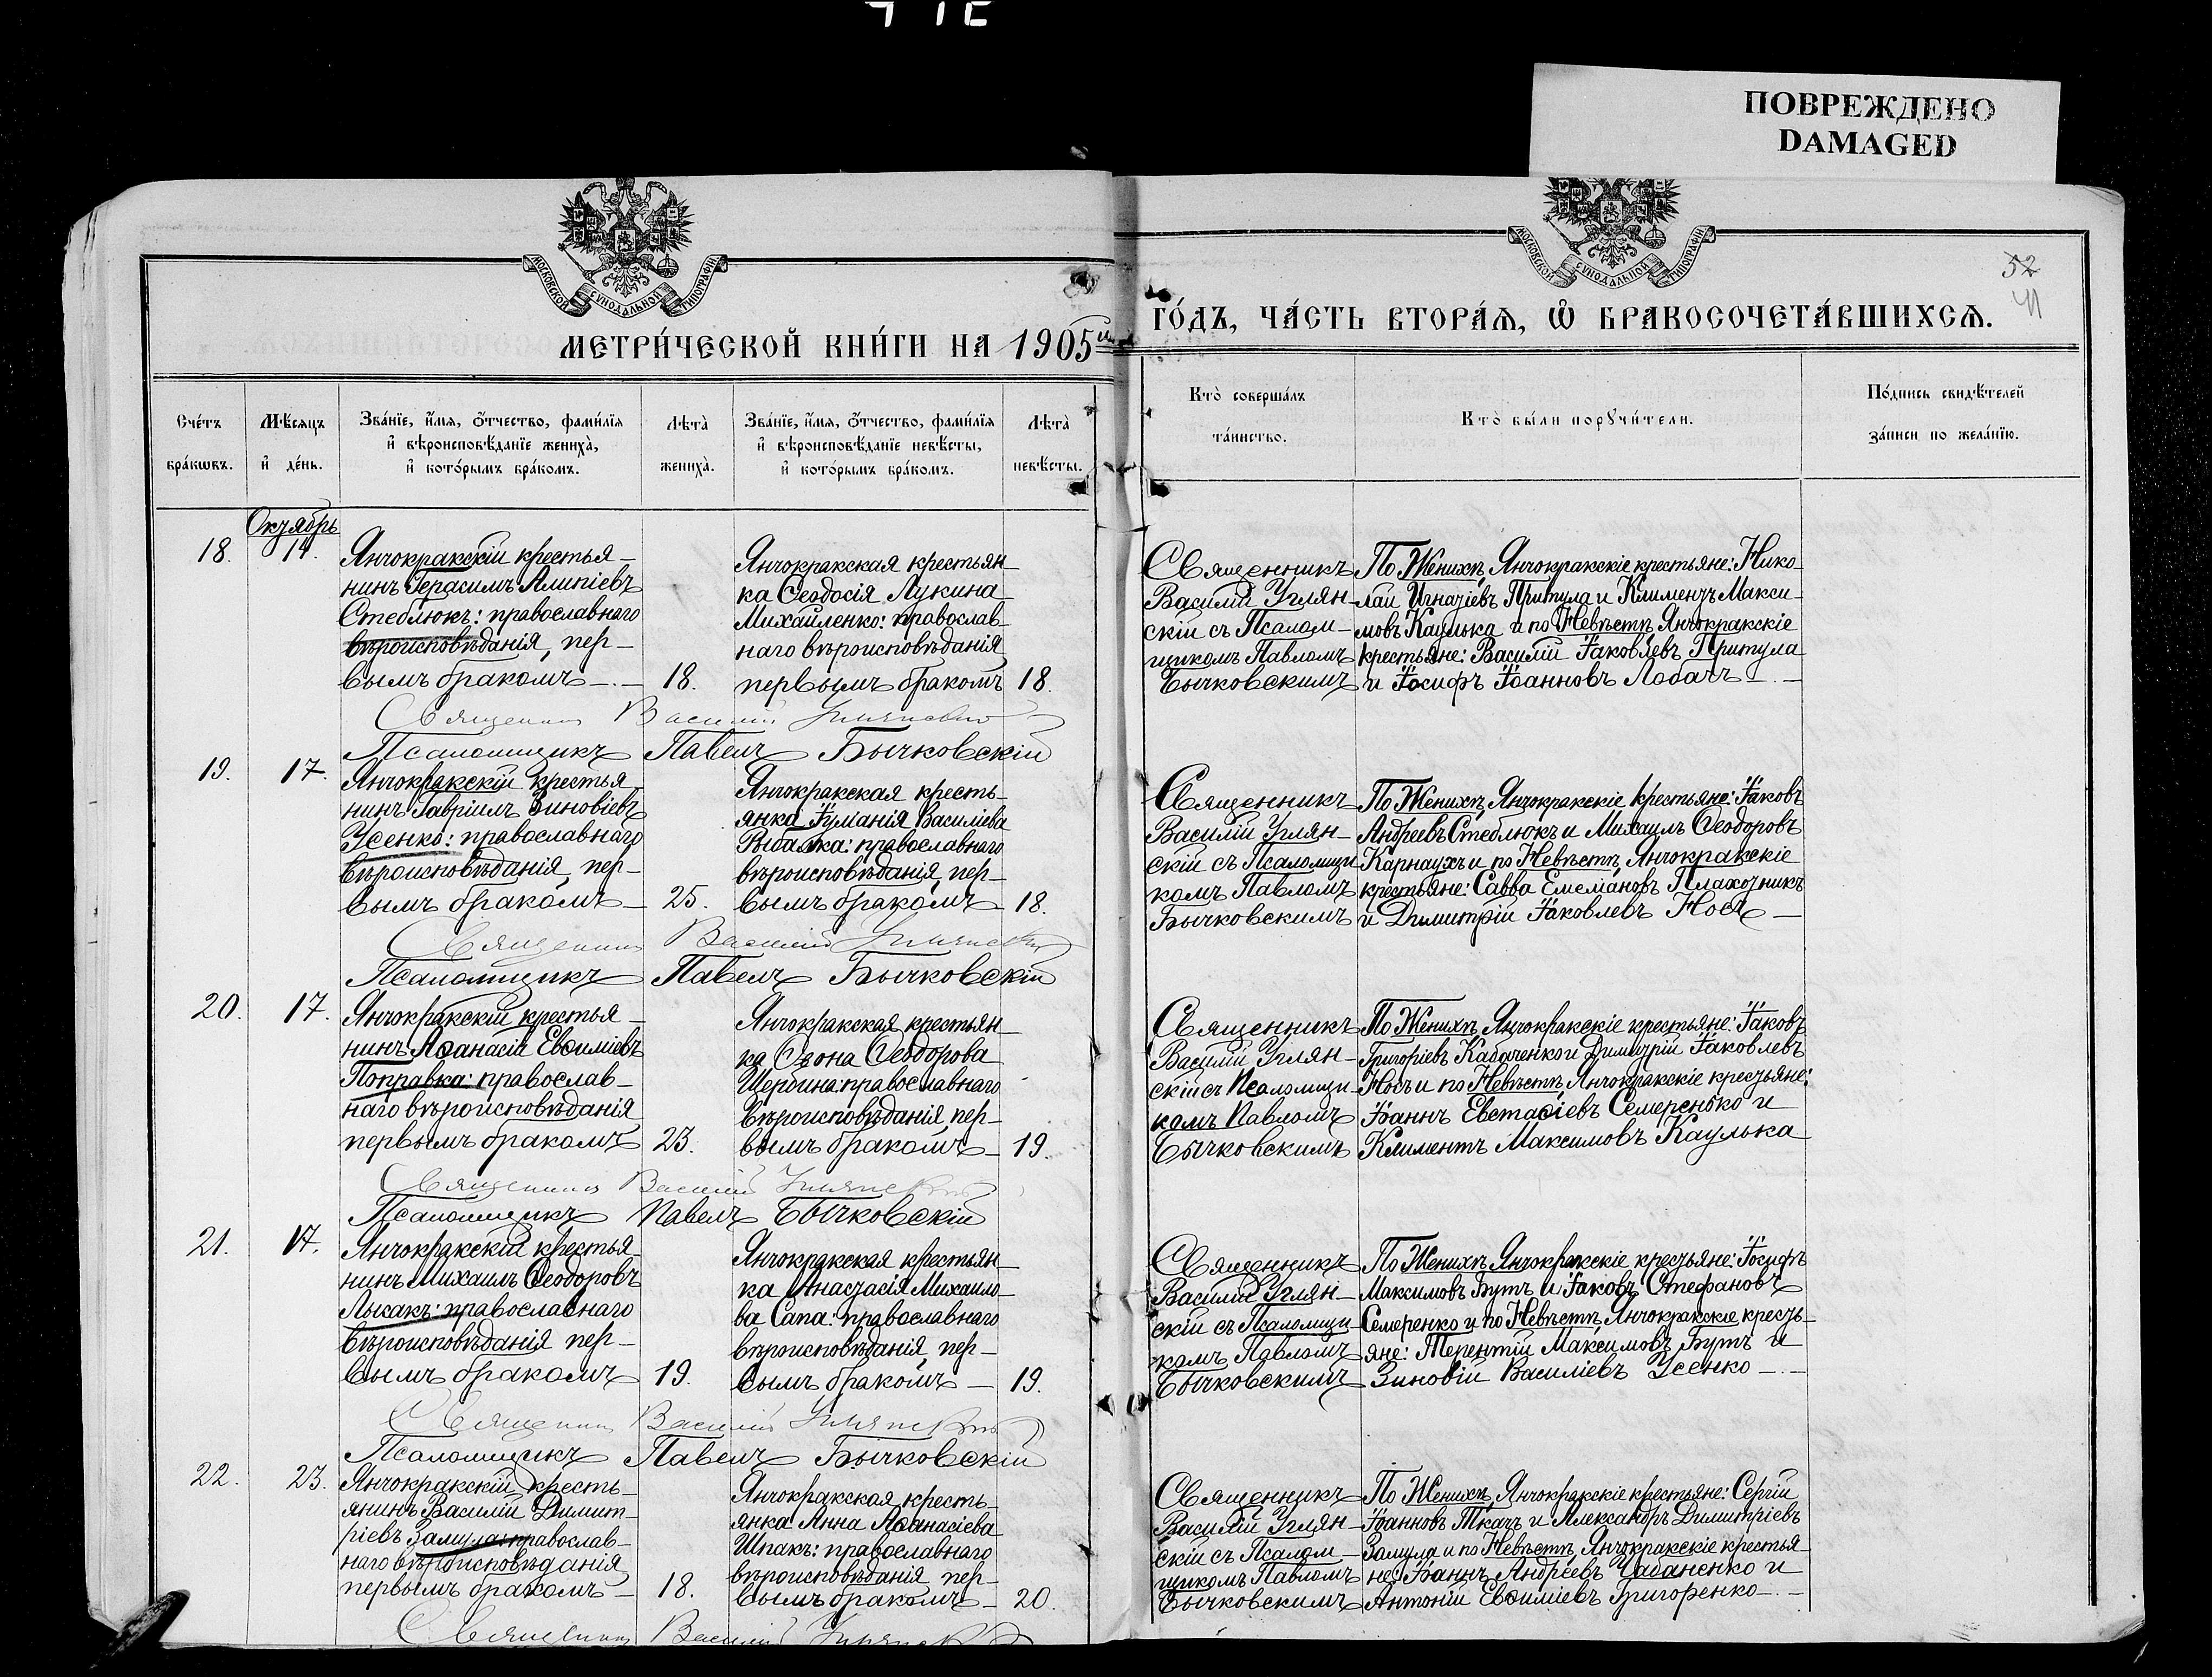 ПОВРЕЖДЕНО
DAMAGED
МОСКОВСКОЙ СѴНОДАЛЬНОЙ ТИПОГРАФІИ
МОСКОВСКОЙ СѴНОДАЛЬНОЙ ТИПОГРАФІИ
52
МЕТРИ́ЧЕСКОЙ КНИ́ГИ НА 1905
ГО́ДЪ, ЧА́СТЬ ВТОРА́Ѧ, Ѿ БРАКОСОЧЕТА́ВШИХСѦ.
Сче́тъ бра́кѡвъ.
Мѣ́сяцъ и҆ де́нь.
Зва́нїе, и҆́мѧ, ѻ҆́тчество, фами́лїѧ
и҆ вѣроисповѣ́данїе жениха̀,
и҆ кото́рымъ бра́комъ.
Лѣта̀ жениха̀.
Зва́нїе, и҆́мѧ, ѻ҆́тчество, фами́лїѧ
и҆ вѣроисповѣ́данїе невѣ́сты,
и҆ кото́рымъ бра́комъ.
Лѣта̀ невѣ́сты.
Кто̀ соверша́лъ та́инство.
Кто̀ бы́ли порꙋчи́тели.
По́дпись свидѣ́телей за́писи по жела́нїю.
Октябрь
18. 14.
Янчокракскій крестья-
нинъ Герасимъ Алипіевъ
Стеблюкъ: православнаго
вѣроисповѣданія, пер-
вымъ бракомъ 18.
Янчокракская крестьян-
ка Ѳеодосія Лукина
Михайленко: православ-
наго вѣроисповѣданія
первымъ бракомъ 18.
Священникъ
Василій Углян-
скій съ Псалом-
щикомъ Павломъ
Бычковскимъ
По Женихѣ, Янчокракскіе крестьяне: Нико-
лай Игнатіевъ Притула и Климентъ Макси-
мовъ Каулька и по Невѣстѣ, Янчокракскіе
крестьяне: Василій Іаковлевъ Притула
и Іосифъ Іоанновъ Лобачъ
Священникъ Василій Углянскій
Псаломщикъ Павелъ Бычковскій
19. 17.
Янчокракскій крестья-
нинъ Гавріилъ Зиновіевъ
Усенко: православнаго
вѣроисповѣданія, пер-
вымъ бракомъ 25.
Янчокракская кресть-
янка Іуліанія Василіева
Рыбалка: православнаго
вѣроисповѣданія, пер-
вымъ бракомъ 18.
Священникъ
Василій Углян-
скій съ Псаломщи-
комъ Павломъ
Бычковскимъ
По Женихѣ, Янчокракскіе крестьяне: Іаковъ
Андреевъ Стеблюкъ и Михаилъ Ѳеодоровъ
Карнаухъ и по Невѣстѣ, Янчокракскіе
крестьяне: Савва Емеліановъ Плахотникъ
и Димитрій Іаковлевъ Носъ
Священникъ Василій Углянскій
Псаломщикъ Павелъ Бычковскій
20. 17.
Янчокракскій крестья-
нинъ Аѳанасій Евѳиміевъ
Поправка: православ-
наго вѣроисповѣданія
первымъ бракомъ 23.
Янчокракская крестьян-
ка Ѳеона Ѳеодорова
Щербина: православнаго
вѣроисповѣданія, пер-
вымъ бракомъ 19.
Священникъ
Василій Углян-
скій съ Псаломщи-
комъ Павломъ
Бычковскимъ
По Женихѣ, Янчокракскіе крестьяне: Іаковъ
Григоріевъ Кабаченко и Димитрій Іаковлевъ
Носъ и по Невѣстѣ, Янчокракскіе крестьяне:
Іоаннъ Евстаѳіевъ Семеренько и
Климентъ Максимовъ Каулька
Священникъ Василій Углянскій
Псаломщикъ Павелъ Бычковскій
21. 17.
Янчокракскій крестья-
нинъ Михаилъ Ѳеодоровъ
Лысакъ: православнаго
вѣроисповѣданія пер-
вымъ бракомъ 19.
Янчокракская крестьян-
ка Анастасія Михаило-
ва Сапа: православнаго
вѣроисповѣданія, пер-
вымъ бракомъ 19.
Священникъ
Василій Углян-
скій съ Псаломщи-
комъ Павломъ
Бычковскимъ
По Женихѣ, Янчокракскіе крестьяне: Іосифъ
Максимовъ Бутъ и Іаковъ Стефановъ
Семеренко и по Невѣстѣ, Янчокракскіе кресть-
яне: Терентій Максимовъ Бутъ и
Зиновій Василіевъ Усенко
Священникъ Василій Углянскій
Псаломщикъ Павелъ Бычковскій
22. 23.
Янчокракскій кресть-
янинъ Василій Димит-
ріевъ Замула: православ-
наго вѣроисповѣданія
первымъ бракомъ 18.
Янчокракская кресть-
янка Анна Аѳанасіева
Шпакъ: православнаго
вѣроисповѣданія пер-
вымъ бракомъ 20.
Священникъ
Василій Углян-
скій съ Псалом-
щикомъ Павломъ
Бычковскимъ
По Женихѣ, Янчокракскіе крестьяне: Сергій
Іоанновъ Ткачъ и Александръ Димитріевъ
Замула и по Невѣстѣ, Янчокракскіе крестья-
не: Іоаннъ Андреевъ Чабаненко и
Антоній Евѳиміевъ Григоренко
Священникъ Василій Углянскій